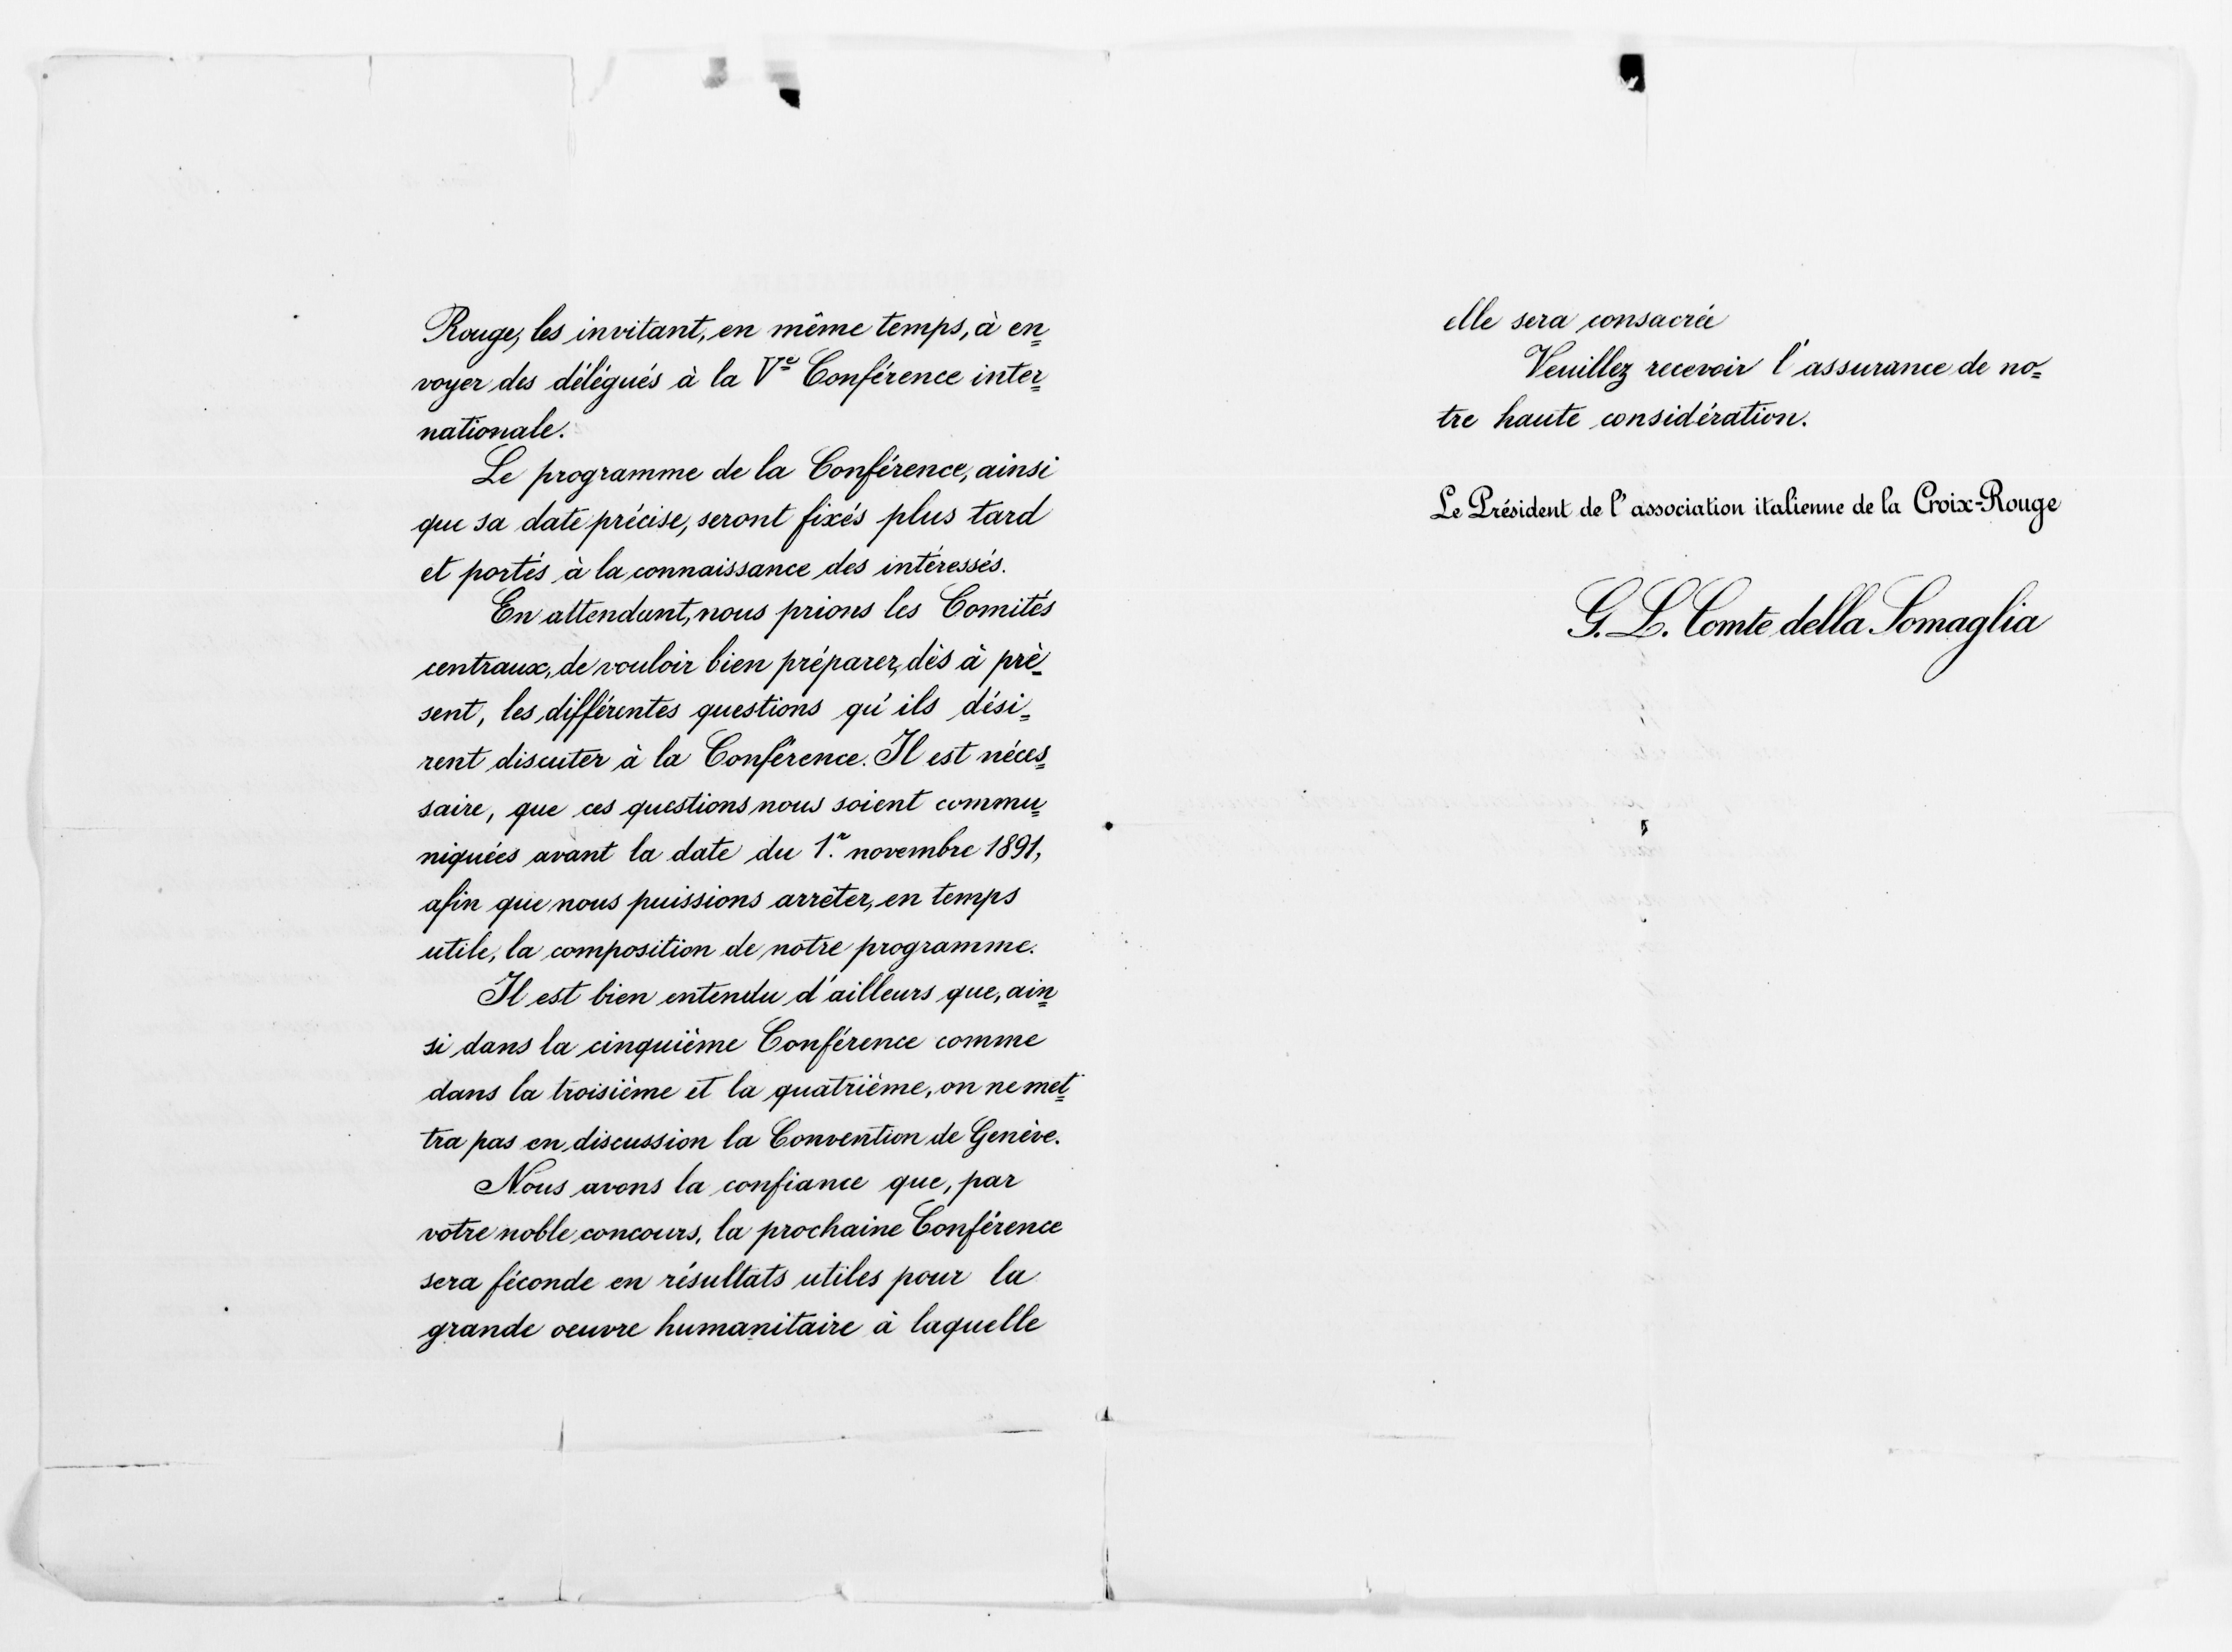 Rouge, les invitant, en même temps, à en=
voyer des délégués à la Vᵉ Conférence inter=
nationale.
Le programme de la Conférence, ainsi
que sa date précise, seront fixés plus tard
et portés à la connaissance des intéressés.
En attendant, nous prions les Comités
centraux, de vouloir bien préparer, dès à prè=
sent, les différentes questions qu'ils dési=
rent discuter à la Conférence. Il est néces=
saire, que ces questions nous soient commu=
niquées avant la date du 1.ʳ novembre 1891,
afin que nous puissions arrêter, en temps
utile, la composition de notre programme.
Il est bien entendu d'ailleurs que, ain=
si dans la cinquième Conférence comme
dans la troisième et la quatrième, on ne met=
tra pas en discussion la Convention de Genève.
Nous avons la confiance que, par
votre noble concours, la prochaine Conférence
sera féconde en résultats utiles pour la
grande oeuvre humanitaire à laquelle
elle sera consacrée
Veuillez recevoir l'assurance de no=
tre haute considération.
Le Président de l'association italienne de la Croix-Rouge
G. L. Comte della Somaglia